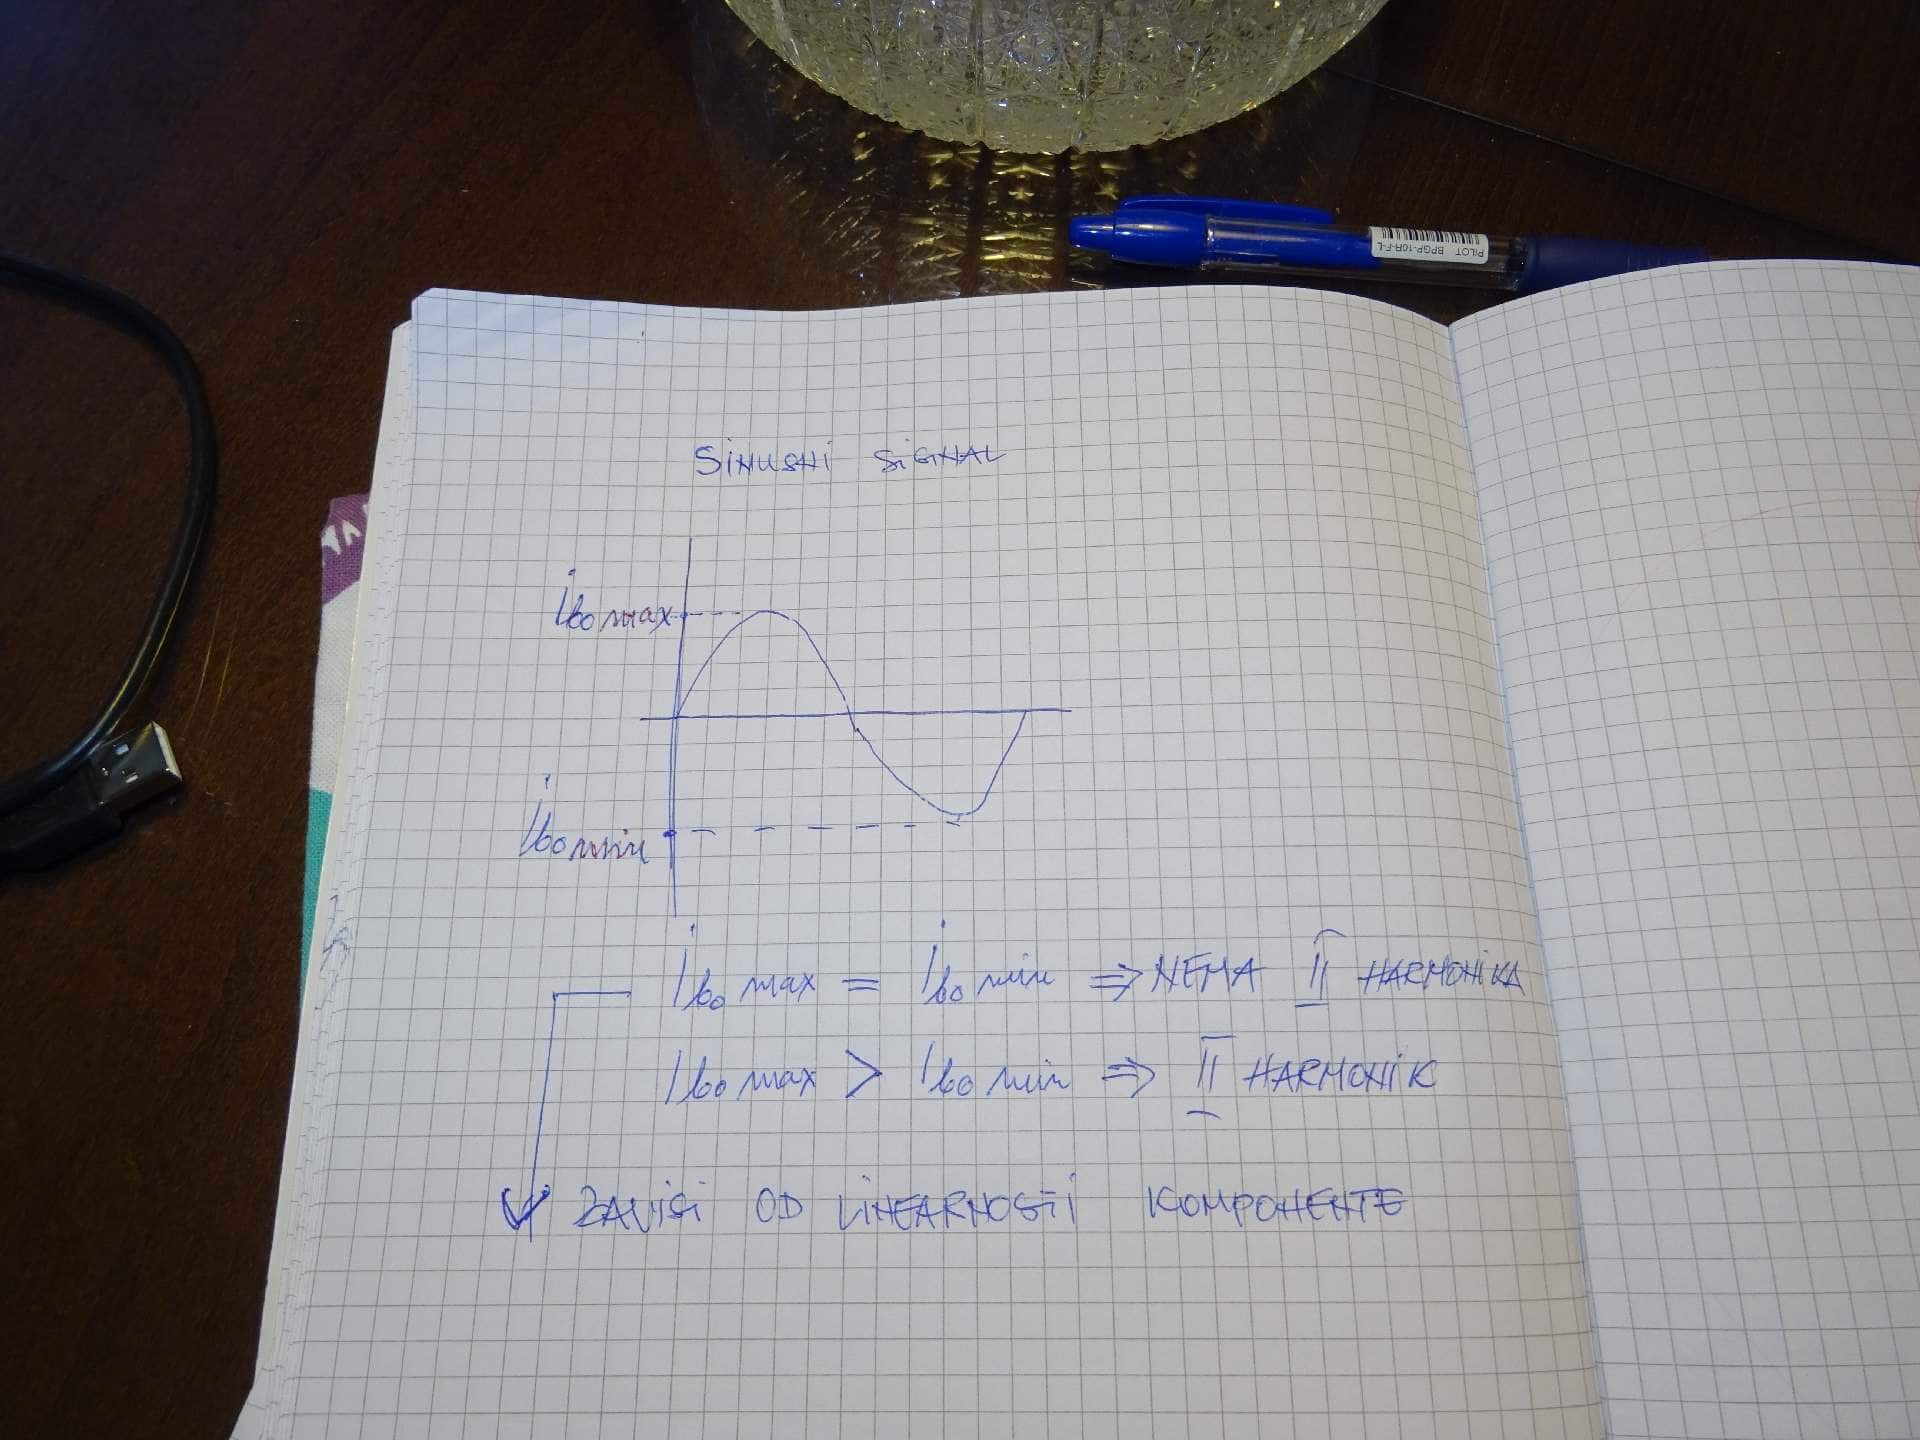 PILOT BPGP-10R-F-L
SINUSNI SIGNAL
ib0 max
ib0 min
ib0 max = ib0 min ⇒ NEMA II HARMONIKA
ib0 max > ib0 min ⇒ II HARMONIK
ZAVISI OD LINEARNOSTI KOMPONENTE